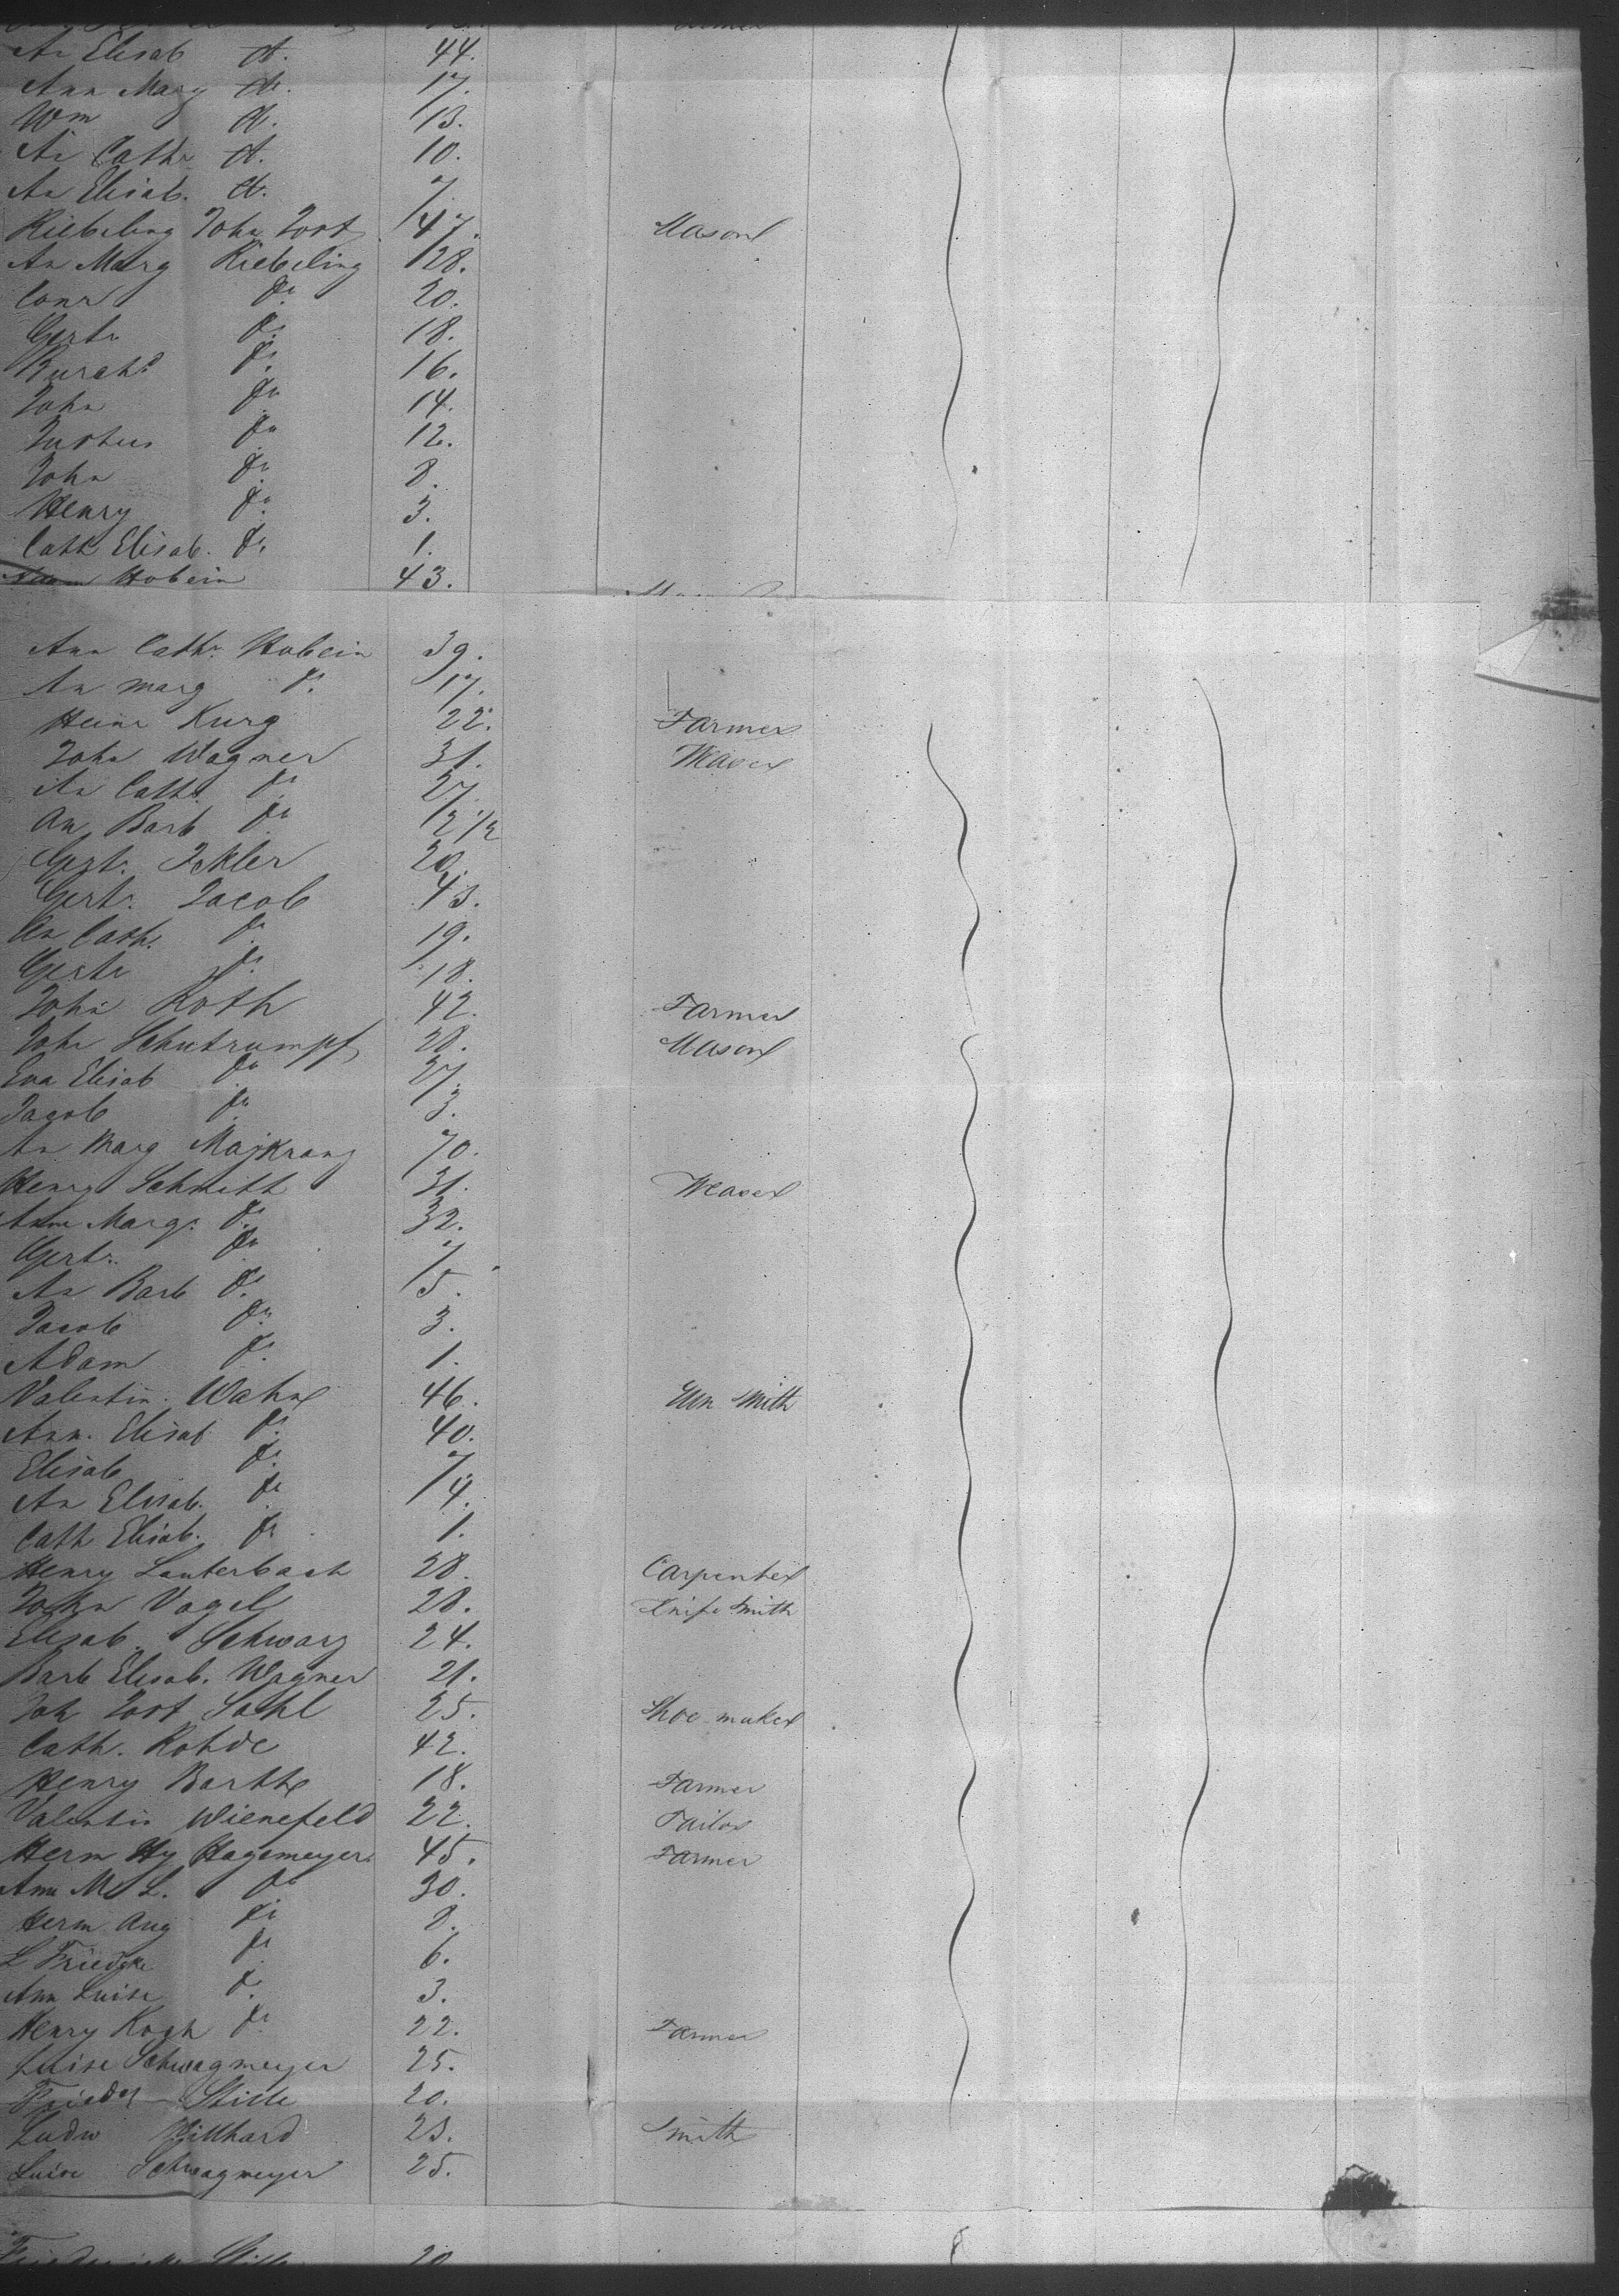 An Elisab do. 44.
Ann Marg do. 17.
Wm do. 13.
An Cathr do. 10.
An Elisab. do. 7.
Riebeling John Jost 47. Mason
An Marg Riebeling 28.
Conr do. 20.
Gertr do. 18.
Burchd do. 16.
John do. 14.
Justus do. 12.
John do. 8.
Henry do. 3.
Cath Elisab. do. 1.
Hobein 43.
Ann Cathr. Hobein 39.
An marg do. 17.
Heinr Kurg 22. Farmer
John Wagner 31. Weaver
An Cathr. do 27.
An Barb do 2 1/2
Gertr. Ickler 20.
Gertr. Jacob 43.
An Cath. do. 19.
Gertr do. 18.
John Roth 42. Farmer
John Schutrumpf 28. Mason
Eva Elisab do 27.
Jacob do. 3.
An Marg Majkranz 70.
Henry Schmith 31. Weaver
Ann Marg. do. 32.
Gertr. do 7.
An Barb do. 5.
Jacob do. 3.
Adam do. 1.
Valentin Wahn 46. Gun Smith
Ann. Elisab do. 40.
Elisab do. 7.
An Elisab. do 4.
Cath Elisab. do. 1.
Henry Lauterbach 28. Carpenter
John Vogel 28. Knife Smith
Elisab. Schwarz 24.
Barb Elisab. Wagner 21.
Joh Jost Sahl 25. Shoe maker
Cath. Rohde 42.
Henry Barth 18. Farmer
Valentin Wienefeld 22. Tailor
Herm Hy Hagemeyer 45. Farmer
Ann M L. do 30.
Herm Aug do 8.
L Friedke do 6.
Ann Luise do. 3.
Henry Kogh do. 22. Farmer
Luise Schwagmeyer 25.
Friedr Stille 20.
Ludw Willhard 23. Smith
Luise Schwagmeyer 25.
Stille 20